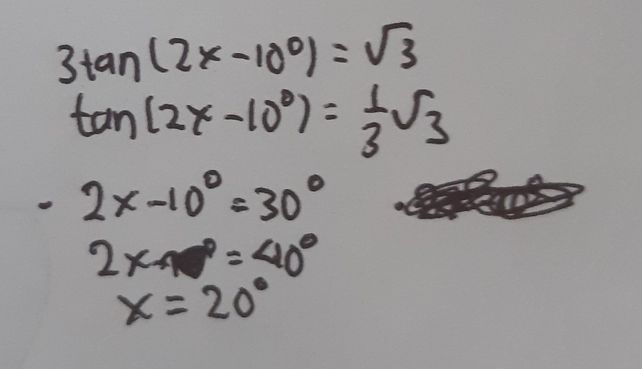 3tan(2x-10°) = √3
tan(2x-10°) = 1/3 √3
- 2x-10° = 30°
2x = 40°
x = 20°